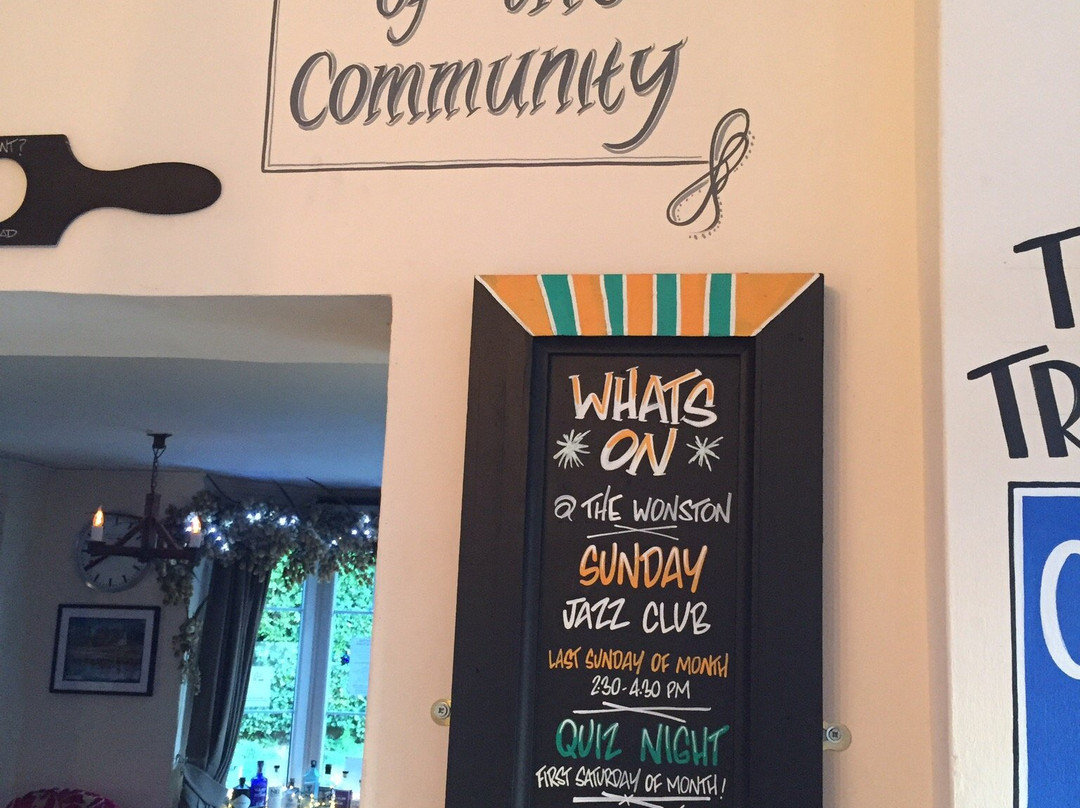 of the
Community
NT?
AD
WHATS
ON
@ THE WONSTON
SUNDAY
JAZZ CLUB
LAST SUNDAY OF MONTH
2:30-4:30 PM
QUIZ NIGHT
FIRST SATURDAY OF MONTH!
T
TR